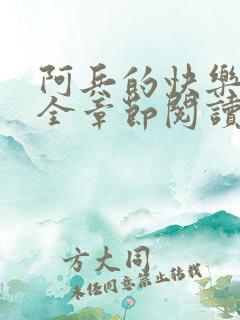 阿兵的快樂
全章節閱讀
方大同
未经同意禁止转载